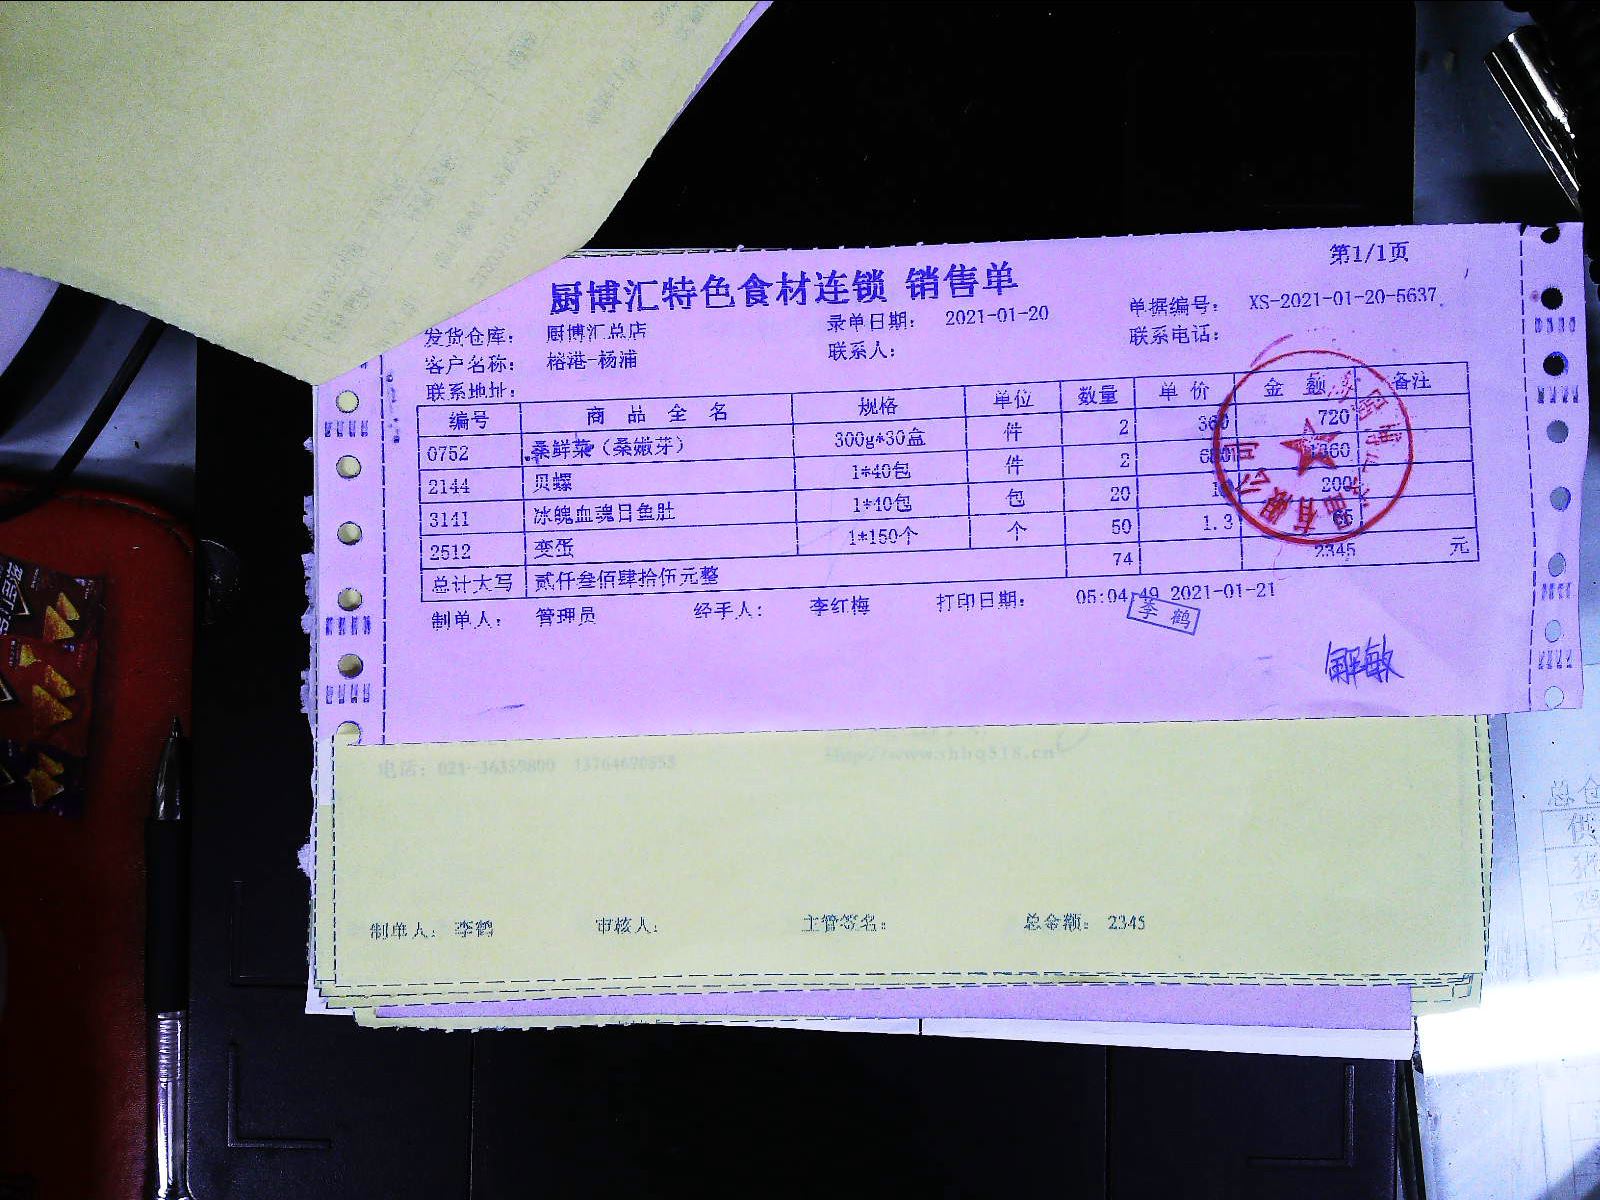 第1/1页
厨博汇特色食材连锁 销售单
发货仓库: 厨博汇总店 录单日期: 2021-01-20 单据编号: XS-2021-01-20-5637
客户名称: 榕港-杨浦 联系人: 联系电话:
联系地址:
编号 商品全名 规格 单位 数量 单价 金额 备注
0752 桑鲜菜(桑嫩芽) 300g*30盒 件 2 360 720
2144 贝螺 1*40包 件 2 680 1360
3141 冰魄血魂日鱼肚 1*40包 包 20 10 200
2512 变蛋 1*150个 个 50 1.3 65
总计大写 贰仟叁佰肆拾伍元整 74 2345 元
制单人: 管理员 经手人: 李红梅 打印日期: 05:04:49 2021-01-21
李鹤
解敏
电话: 021-36359800 13764620553
http://www.shhq518.cn
制单人: 李鹤 审核人: 主管签名: 总金额: 2345
总仓